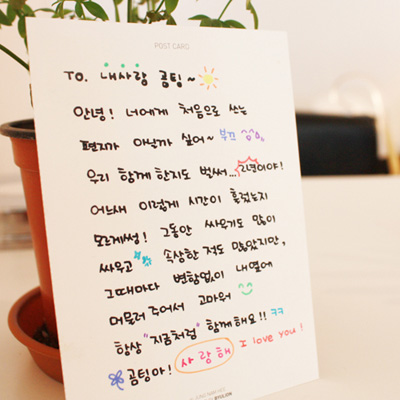 POST CARD
TO. 내사랑 곰팅~
안녕! 너에게 처음으로 쓰는
편지가 아닐까 싶어~ 부끄
우리 함께 한지도 벌써... 2년이야!
어느새 이렇게 시간이 흘렀는지
모르게썽! 그동안 싸우기도 많이
싸우고 속상한 적도 많았지만,
그때마다 변함없이 내옆에
머물러 주어서 고마워
항상 "지금처럼" 함께해요!! ㅋㅋ
곰팅아! 사랑해 I love you!